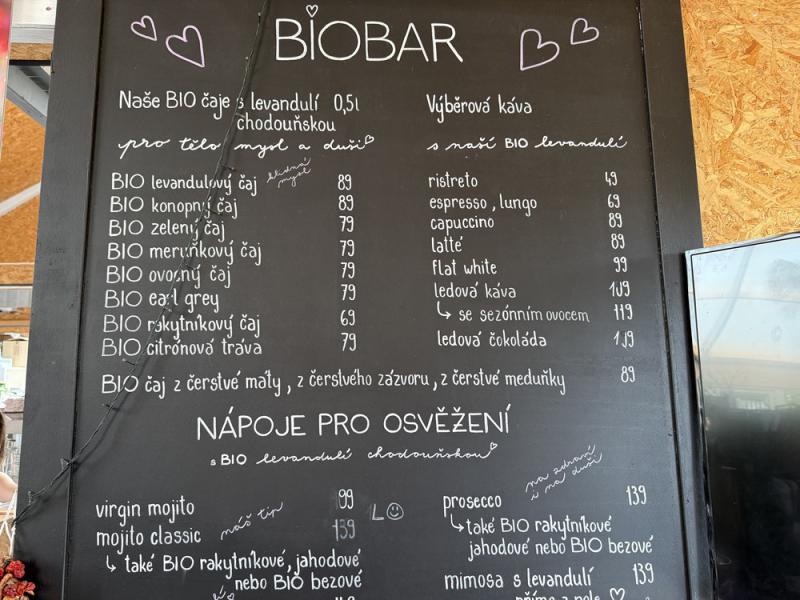 BIOBAR
Naše BIO čaje s levandulí 0,5l
chodouňskou
pro tělo mysl a duši
BIO levandulový čaj klidná mysl 89
BIO konopný čaj 89
BIO zelený čaj 79
BIO meruňkový čaj 79
BIO ovocný čaj 79
BIO earl grey 79
BIO rakytníkový čaj 69
BIO citrónová tráva 79
Výběrová káva
s naší BIO levandulí
ristreto 49
espresso, lungo 69
capuccino 89
latté 89
flat white 99
ledová káva 109
se sezónním ovocem 119
ledová čokoláda 109
BIO čaj z čerstvé máty, z čerstvého zázvoru, z čerstvé meduňky 89
NÁPOJE PRO OSVĚŽENÍ
s BIO levandulí chodouňskou
virgin mojito 99
mojito classic náš tip 139
L
také BIO rakytníkové, jahodové
nebo BIO bezové
na zdraví
i na duši
prosecco 139
také BIO rakytníkové
jahodové nebo BIO bezové
mimosa s levandulí 139
přímo z pole